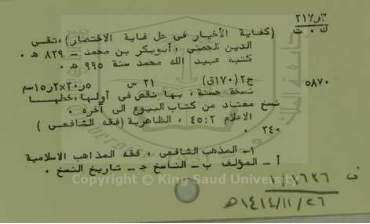 ٢١٧ر٣
ك٠ ت
(كفاية الأخيار في حل غاية الاختصار)، تقى
الدين الحصني، أبوبكر بن محمد - ٨٢٩ هـ ٠
كتب عبيد الله محمد سنة ٩٩٥ هـ ٠
٥٨٧٠
ج٢ (١٧٠ق) ٢١ س ٢٠٫٥×١٥٫٢سم
نسخة حسنة، بها نقص في أولها، خطها
نسخ معتاد من كتاب البيوع الى آخره ٠
الاعلام ٤٥:٢ ، الظاهرية (فقه الشافعى)
٢٤٠ ٠
١- المذهب الشافعى ، فقه المذاهب الاسلامية
أ - المؤلف ب - الناسخ ج - تاريخ النسخ ٠
Copyright © King Saud University
ف
١٤١٤/١١/٢٦هـ